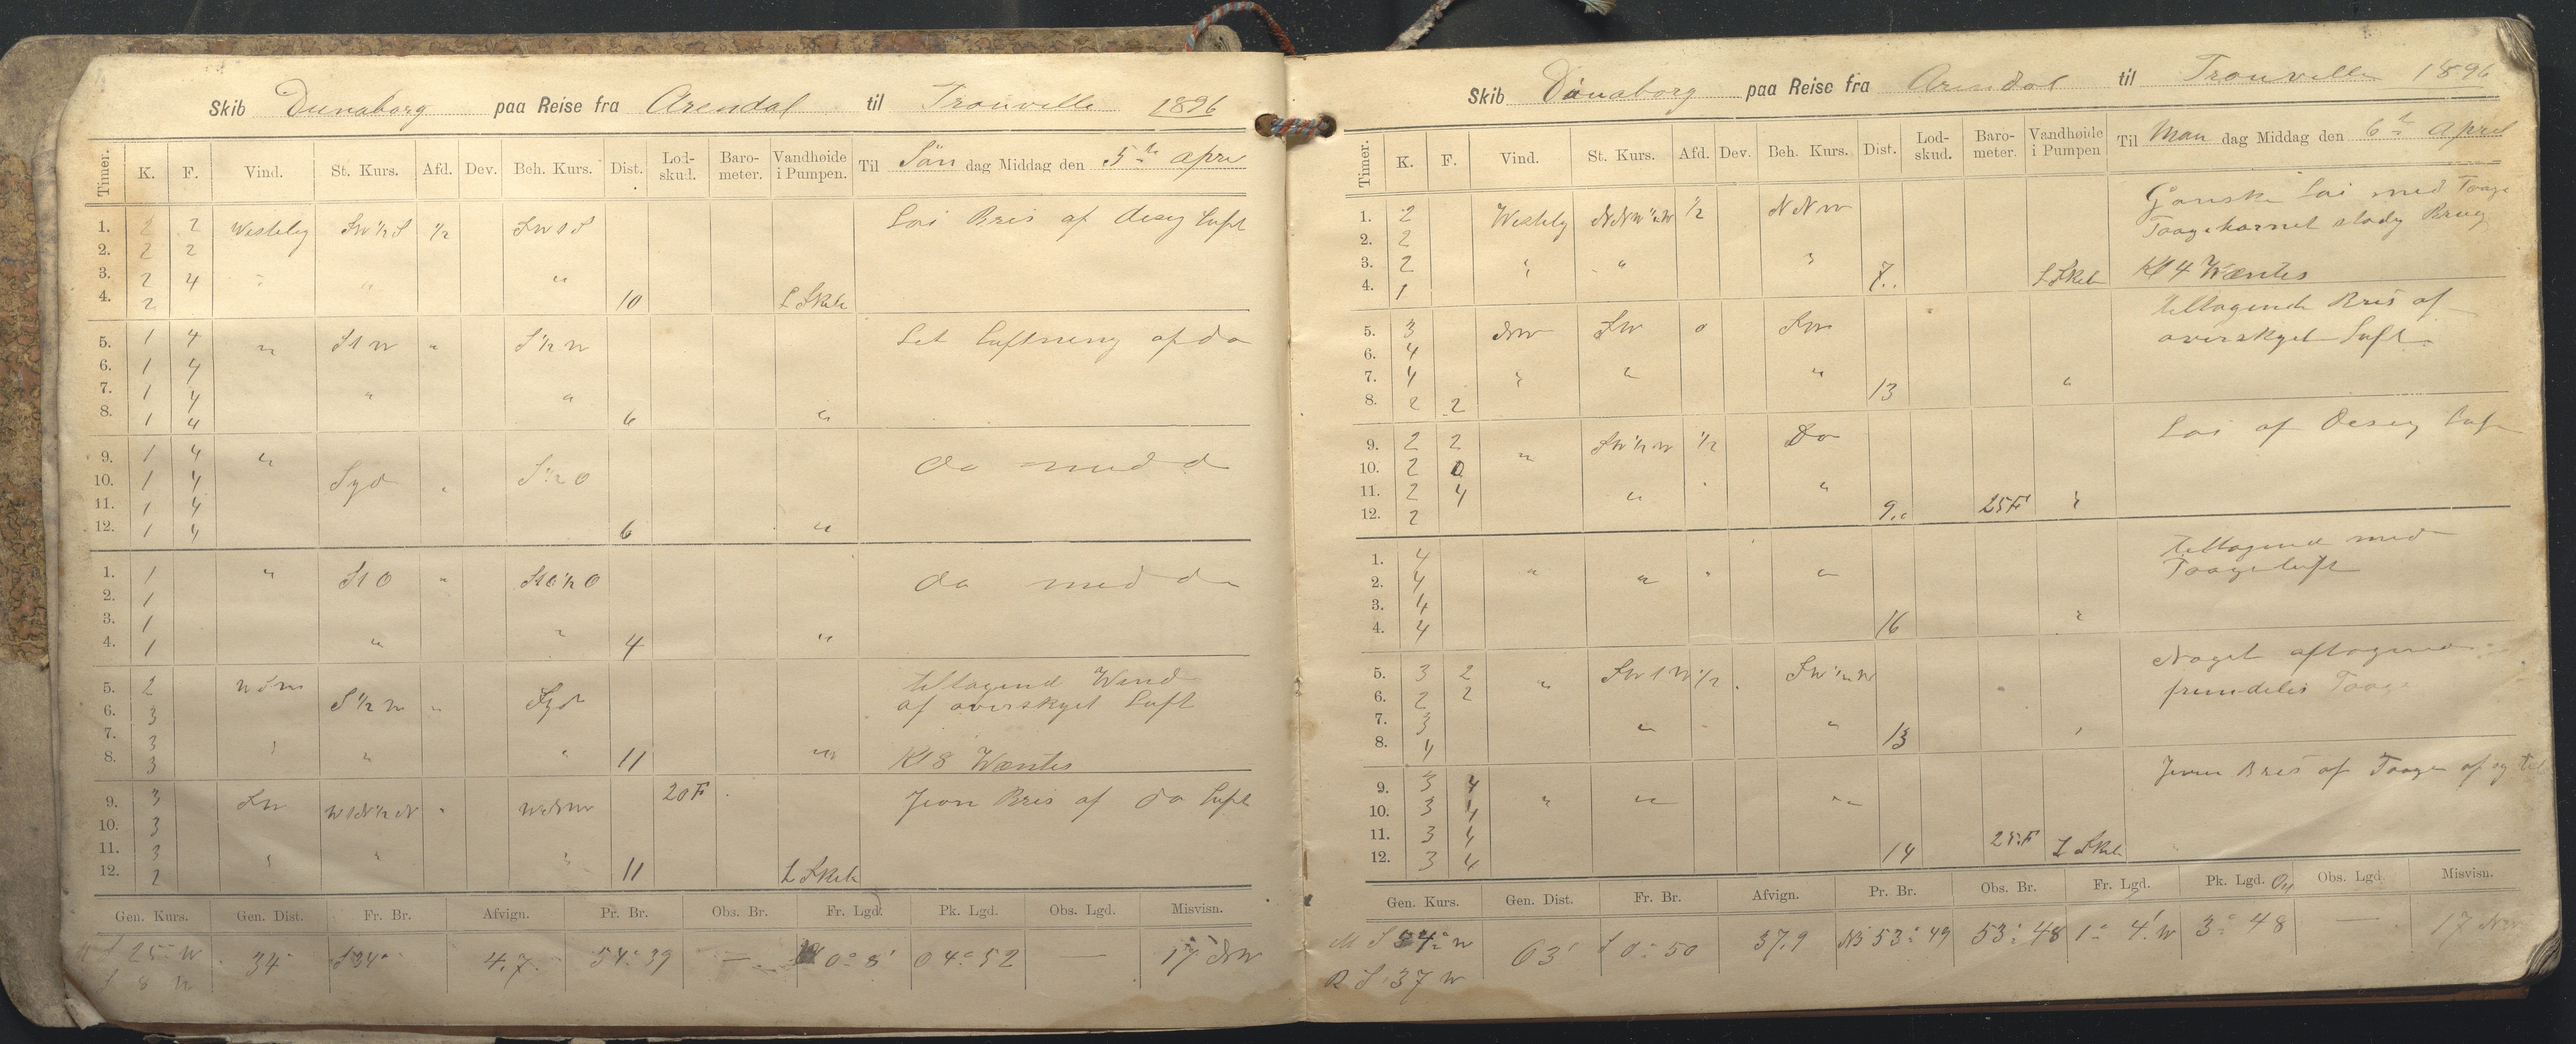 Skib Dunaborg paa Reise fra Arendal til Trouville 1896
Timer. K. F. Vind. St. Kurs. Afd. Dev. Beh. Kurs. Dist. Lod-skud. Baro-meter. Vandhøide i Pumpen. Til Sön dag Middag den 5te Apri
1. 2 2 Westelig SW½S ½ SW1S Loi Bris af Disig Luft
2. 2 2
3. 2 4 " " "
4. 2 10 L Skele
5. 1 4 " S1W " S½W Let Luftning af do
6. 1 4
7. 1 4 " "
8. 1 4 6 "
9. 1 4 " do med d
10. 1 4 Syd " S½O
11. 1 4
12. 1 4 6 "
1. 1 " S1O " S1O½O do med do
2. 1
3. 1
4. 1 " " 4 "
5. 2 S½W " Syd tiltagend Wind
6. 3 af overskyet Luft
7. 3
8. 3 " " 11 " Kl 8 Wæntes
9. 3 SW W1N½N " WNW 20 F Jevn Bris af do Luft
10. 3
11. 3 " " "
12. 2 11 L Skele
Gen. Kurs. Gen. Dist. Fr. Br. Afvign. Pr. Br. Obs. Br. Fr. Lgd. Pk. Lgd. Obs. Lgd. Misvisn.
S 25° W 34 S 34 4.7 54° 39 — 0° 8' O 4° 52 — 17 NW
S 8 W
Skib Dünaborg paa Reise fra Arendal til Trouville 1896
Timer. K. F. Vind. St. Kurs. Afd. Dev. Beh. Kurs. Dist. Lod-skud. Baro-meter. Vandhøide i Pumpen Til Man dag Middag den 6te April
Ganske Loi med Taage
1. 2 Westelig NNW½W ½ NNW Taagehornet stadig Brug
2. 2
3. 2 " " "
4. 1 7 L Skele Kl 4 Wæntes
tiltagende Bris af
5. 3 NW SW 0 SW overskyet Luft
6. 4
7. 4 " " " "
8. 2 2 13
9. 2 2 " SW½W ½ Do Loi af Disig Luft
10. 2 0
11. 2 4 " " "
12. 2 9 25F "
tiltagend med
1. 4 " " " " Taageluft
2. 4
3. 4
4. 4 16 "
Noget aftagend
5. 3 2 " SW1W ½ SW½W fremdeles Taage
6. 2 2
7. 3 " " "
8. 4 13
Jevn Bris af Taage af og til
9. 3 4 " " "
10. 3 4
11. 3 4 25 F L Skele
12. 3 4 14
Gen. Kurs. Gen. Dist. Fr. Br. Afvign. Pr. Br. Obs. Br. Fr. Lgd. Pk. Lgd. Obs. Lgd Misvisn.
M S 34° W 63' S 0° 50 37.9 53° 49 53° 48 1° 4' W 3° 48 — 17 NW
R S 37 W